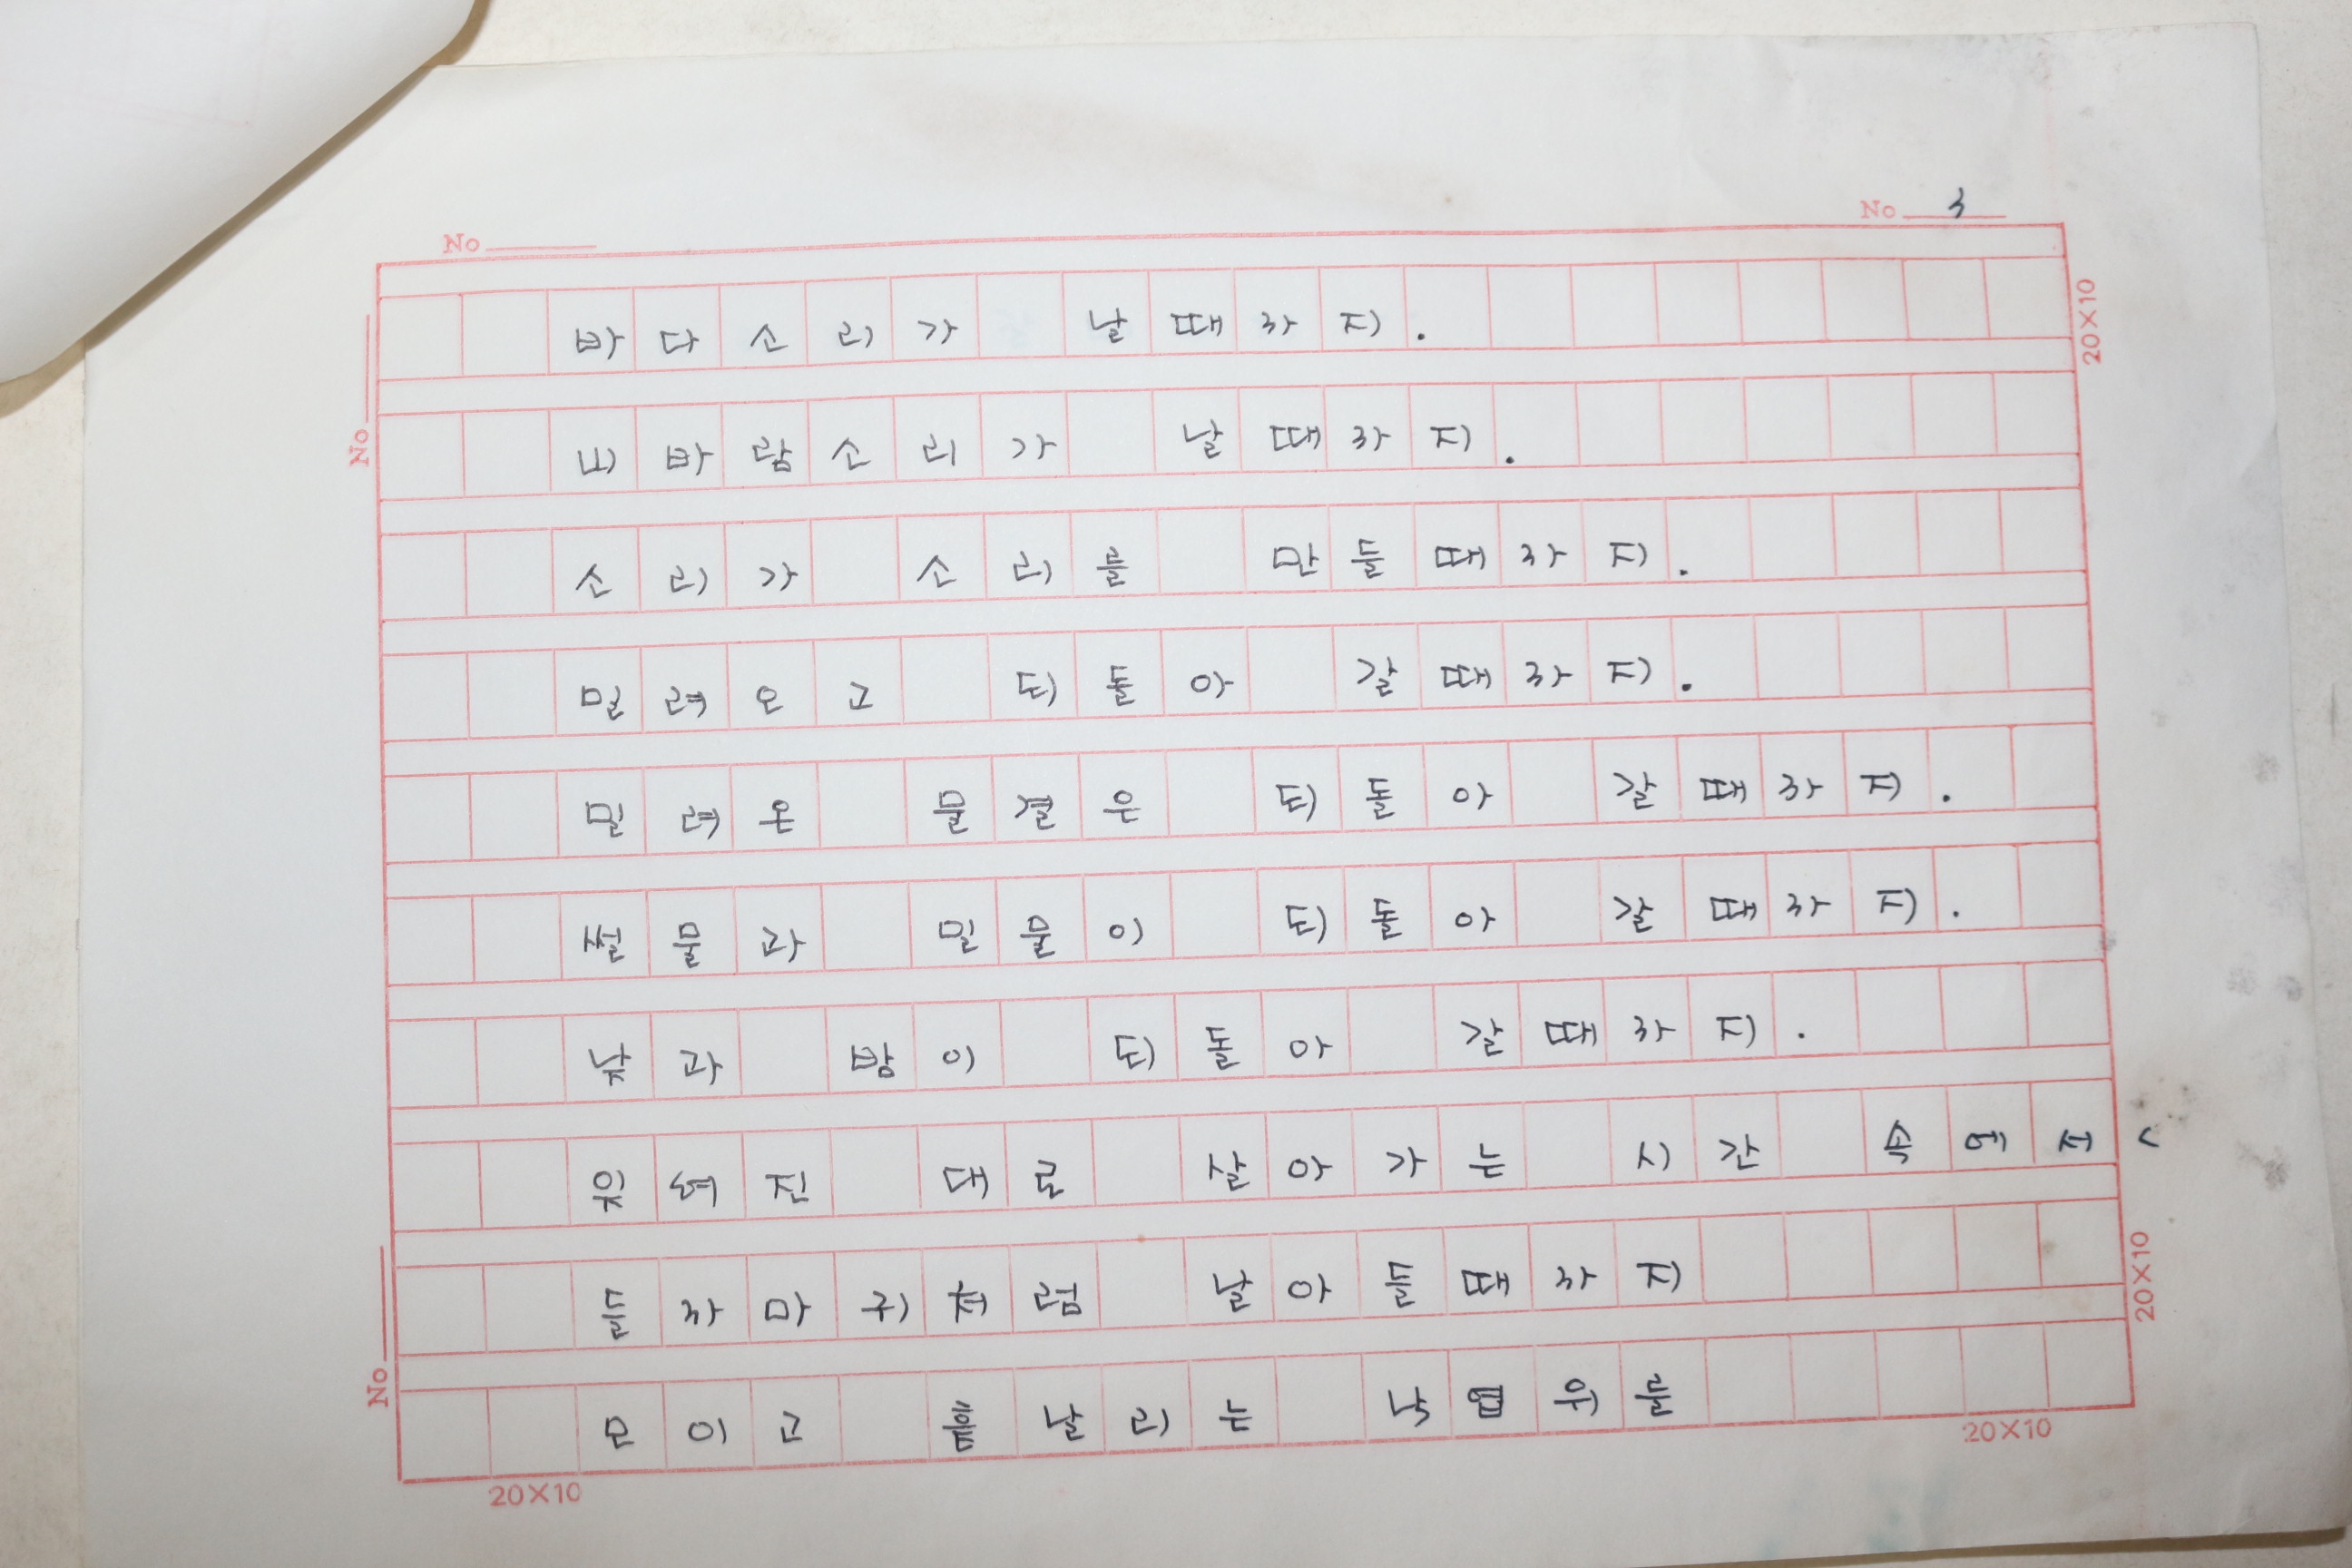 No
No 3
20X10
No
바다소리가 날때까지.
비바람소리가 날때까지.
소리가 소리를 만들때까지.
밀려오고 되돌아 갈때까지.
밀려온 물결은 되돌아 갈때까지.
썰물과 밀물이 되돌아 갈때까지.
낮과 밤이 되돌아 갈때까지.
잊혀진 대로 살아가는 시간 속에서 <
들까마귀처럼 날아들때까지
모이고 흩날리는 낙엽위를
20X10
No
20X10
20X10